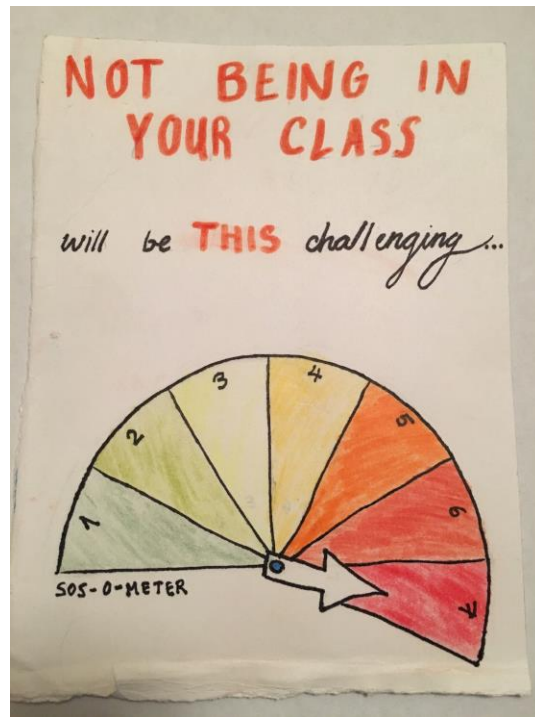 NOT BEING IN
YOUR CLASS
will be THIS challenging...
1
2
3
4
5
6
7
SOS-O-METER